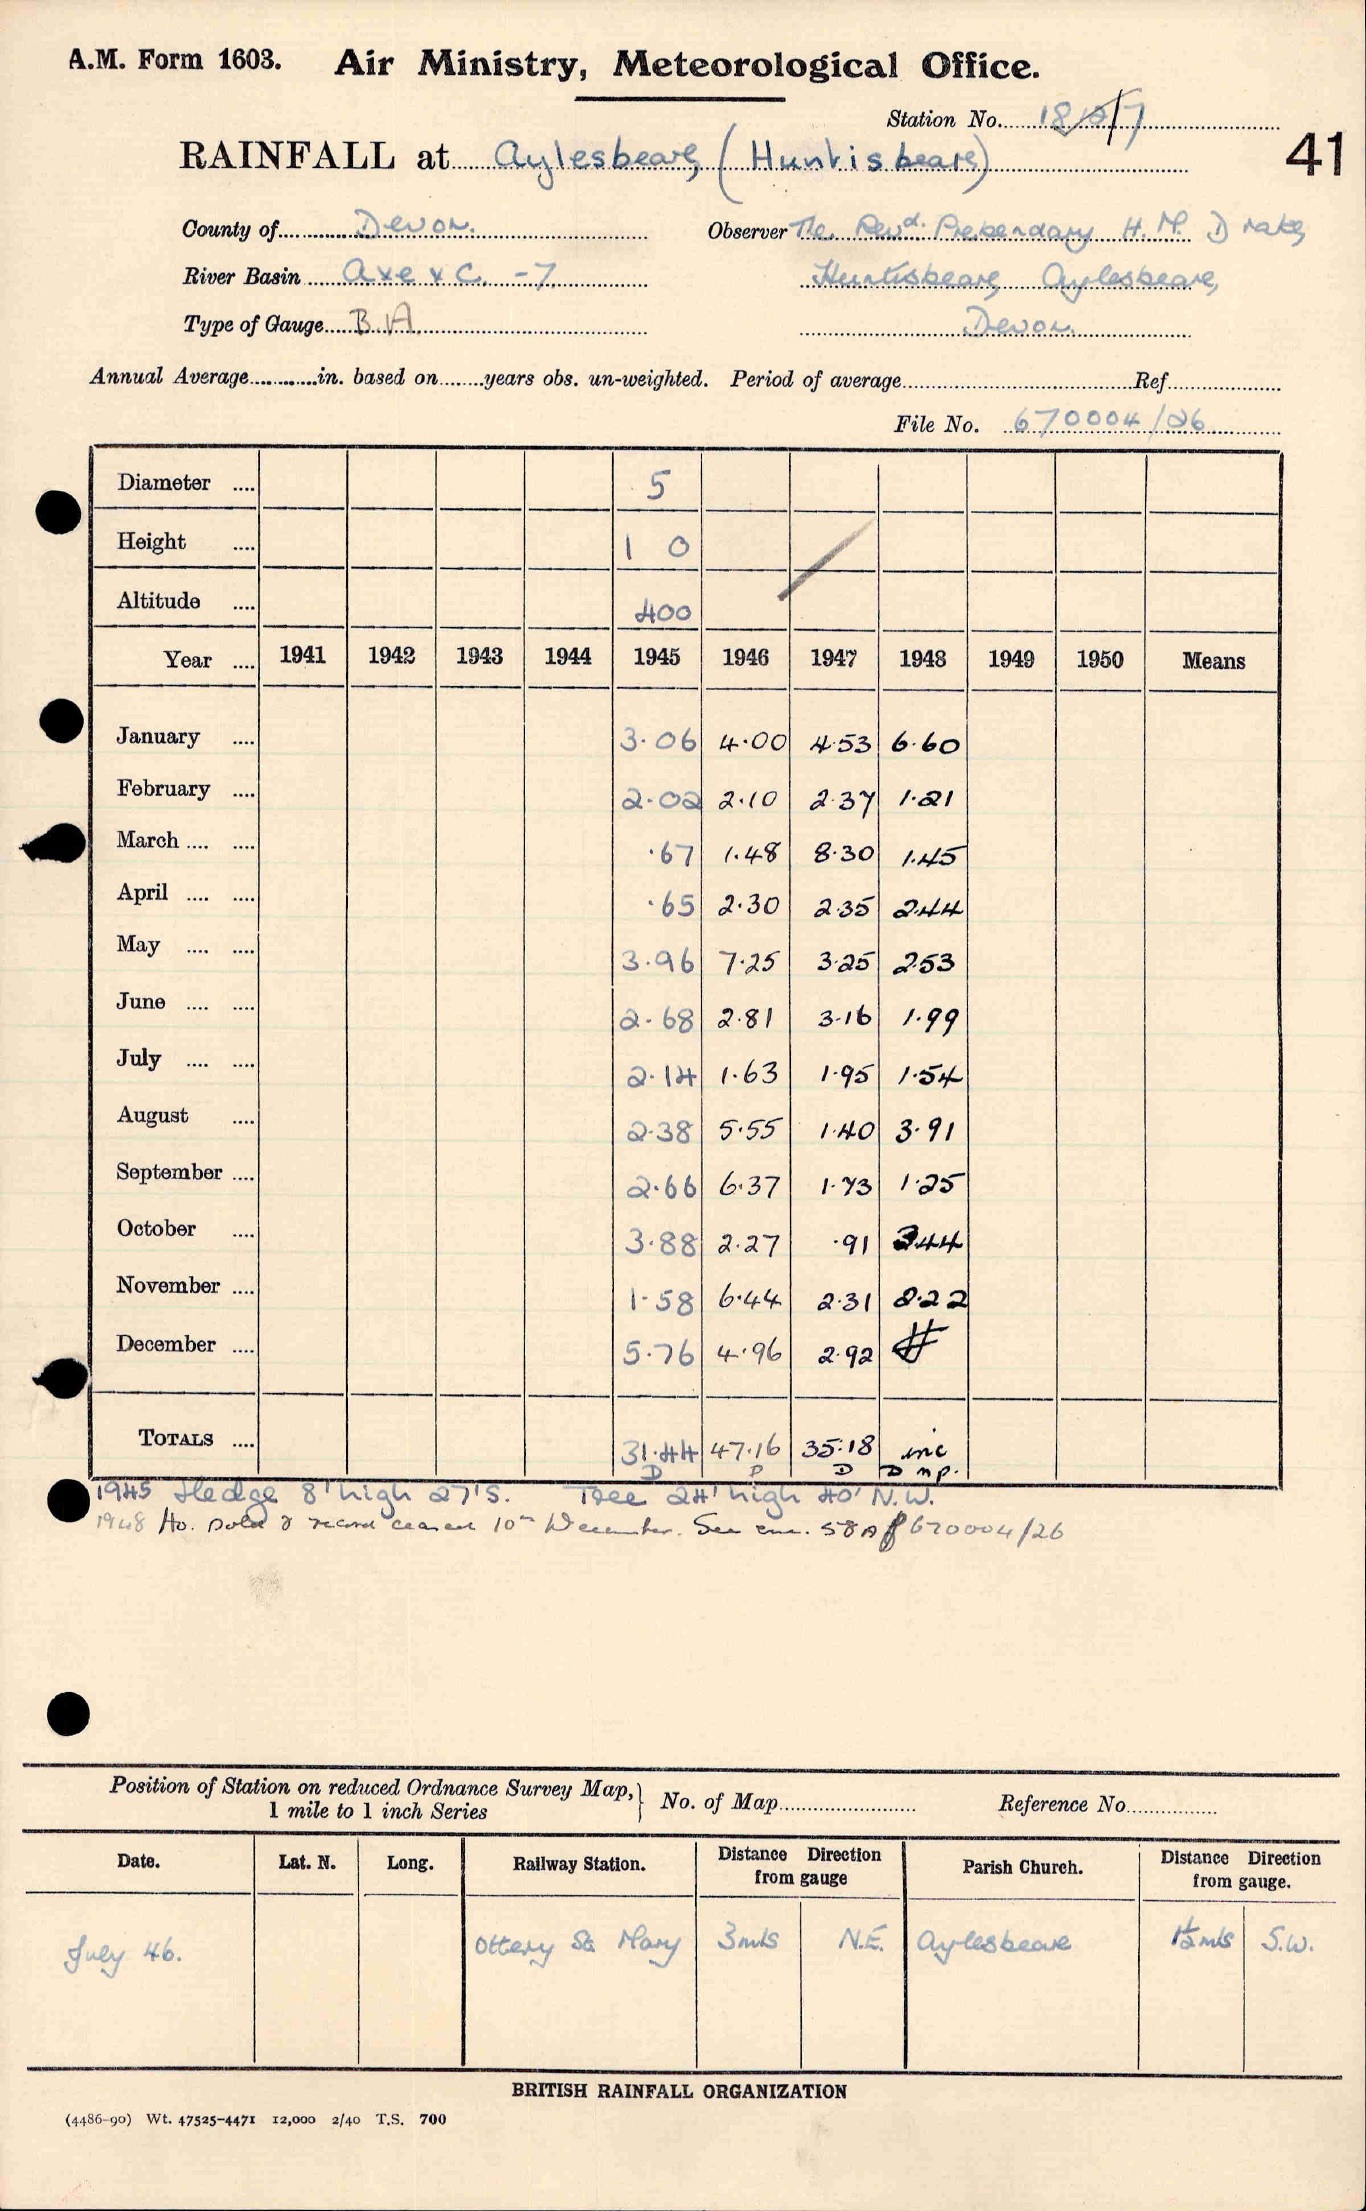 A.M. Form 1603. Air Ministry, Meteorological Office.
Station No. 18 7
RAINFALL at Aylesbeare, (Huntisbeare) 41
County of Devon. Observer The Revd. Prebendary H. M. Drake,
River Basin Axe &c. -7. Huntisbeare, Aylesbeare,
Type of Gauge B.A Devon.
Annual Average in. based on years obs. un-weighted. Period of average Ref
File No. 670004/26
Diameter 5
Height 1 0
Altitude 400
Year 1941 1942 1943 1944 1945 1946 1947 1948 1949 1950 Means
January 3.06 4.00 4.53 6.60
February 2.02 2.10 2.37 1.21
March .67 1.48 8.30 1.45
April .65 2.30 2.35 2.44
May 3.96 7.25 3.25 2.53
June 2.68 2.81 3.16 1.99
July 2.14 1.63 1.95 1.54
August 2.38 5.55 1.40 3.91
September 2.66 6.37 1.73 1.25
October 3.88 2.27 .91 3.44
November 1.58 6.44 2.31 2.22
December 5.76 4.96 2.92 #
TOTALS 31.44 47.16 35.18 inc
D D D D np.
1945 Hedge 8' high 27' S. Tree 24' high 40' N.W.
1948 Ho. sold & record ceased 10th December. See enc. 58A of 670004/26
Position of Station on reduced Ordnance Survey Map, 1 mile to 1 inch Series } No. of Map Reference No.
Date. Lat. N. Long. Railway Station. Distance Direction from gauge Parish Church. Distance Direction from gauge.
July 46. Ottery St Mary 3mls N.E. Aylesbeare 1½mls S.W.
BRITISH RAINFALL ORGANIZATION
(4486-90) Wt. 47525-4471 12,000 2/40 T.S. 700